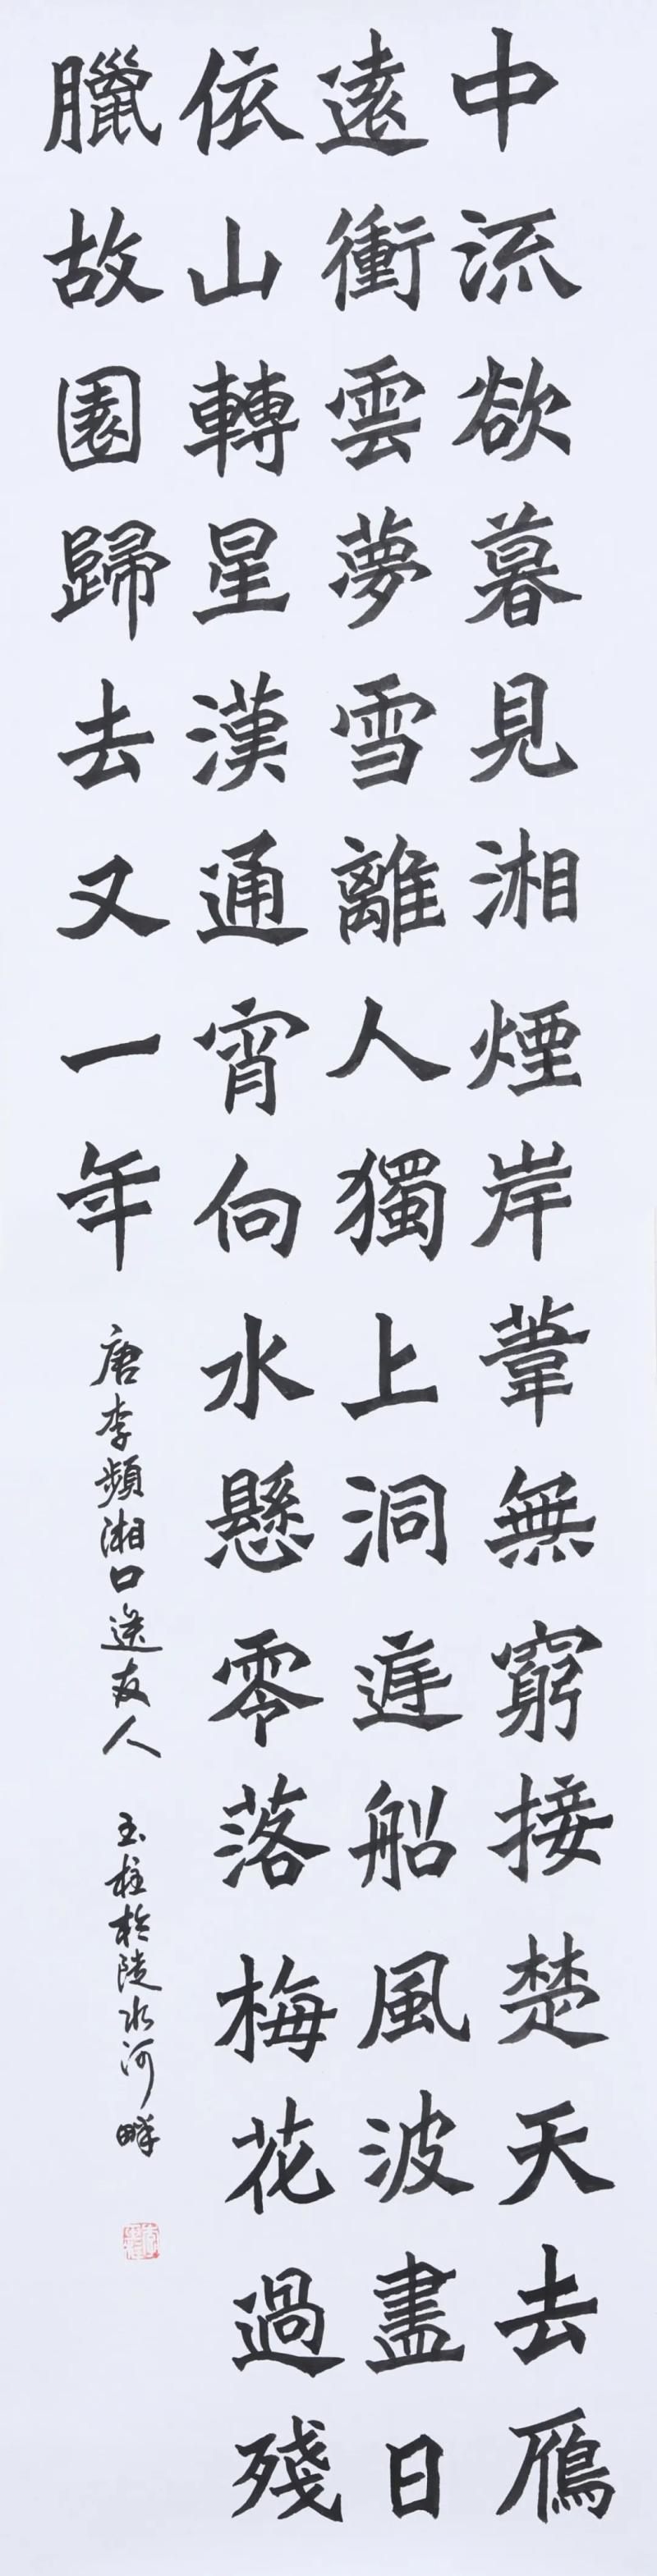 中流欲暮見湘煙岸葦無窮接楚天去鴈
遠衝雲夢雪離人獨上洞庭船風波盡日
依山轉星漢通宵向水懸零落梅花過殘
臘故園歸去又一年
唐李頻湘口送友人 玉柱於陵水河畔